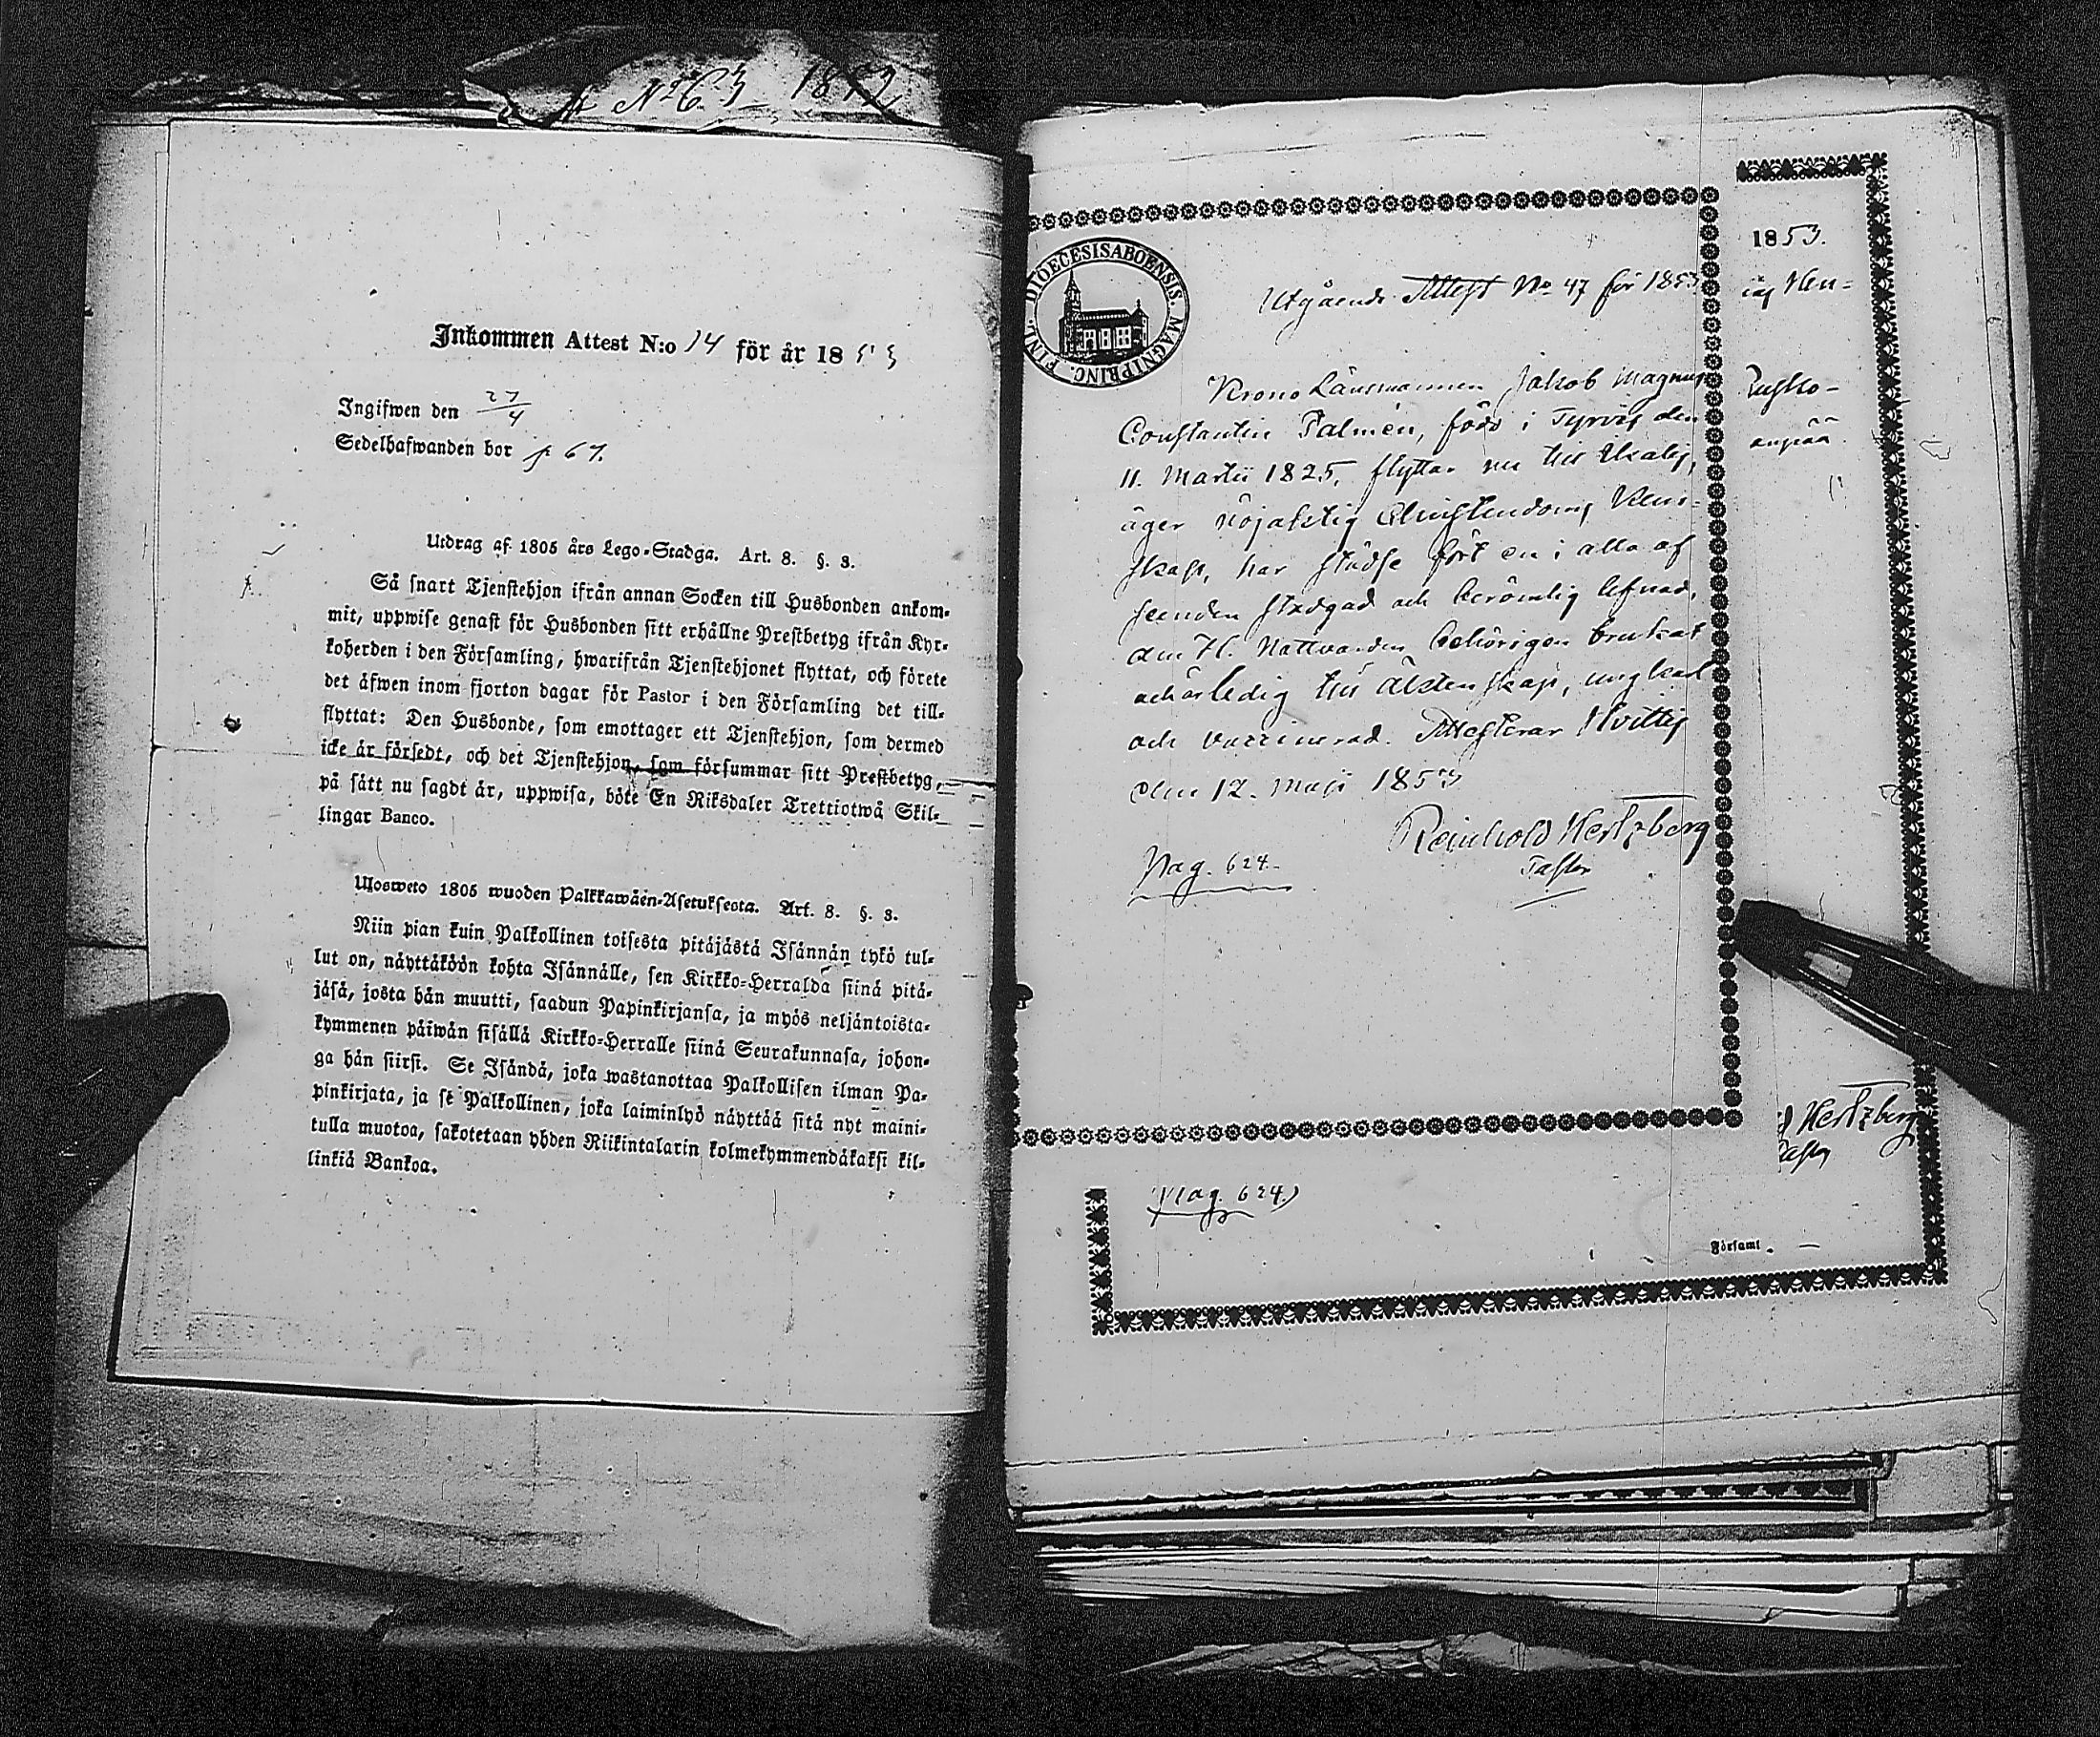 No 63 1853
Inkommen Attest N:o 14 för år 1853
Ingifwen den 27/4
Sedelhafwanden bor p 67.
Utdrag af 1805 års Lego-Stadga. Art. 8. §. 3.
Så snart Tjenstehjon ifrån annan Socken till Husbonden ankom-
mit, uppwise genast för Husbonden sitt erhållne Prestbetyg ifrån Kyr-
koherden i den Församling, hwarifrån Tjenstehjonet flyttat, och förete
det äfwen inom fjorton dagar för Pastor i den Församling det till-
flyttat: Den Husbonde, som emottager ett Tjenstehjon, som dermed
icke är försedt, och det Tjenstehjon, som försummar sitt Prestbetyg,
på sätt nu sagdt är, uppwisa, böte En Riksdaler Trettiotwå Skil-
lingar Banco.
Ulosweto 1805 wuoden Palkkawäen-Asetuksesta. Art. 8. §. 3.
Niin pian kuin Palkollinen toisesta pitäjästä Isännän tykö tul-
lut on, näyttäköön kohta Isännälle, sen Kirkko-Herralda siinä pitä-
jäsä, josta hän muutti, saadun Papinkirjansa, ja myös neljäntoista-
kymmenen päiwän sisällä Kirkko-Herralle siinä Seurakunnasa, johon-
ga hän siirsi. Se Isändä, joka wastanottaa Palkollisen ilman Pa-
pinkirjata, ja se Palkollinen, joka laiminlyö näyttää sitä nyt maini-
tulla muotoa, sakotetaan yhden Riikintalarin kolmekymmendäkaksi kil-
linkiä Bankoa.
DIOECESIS ABOENSIS. MAGNI PRINC. FINL.
Utgående Attest No 47 för 1853
Krono Länsmannen Jakob Magnus
Constantin Palmén, född i Tyrvis den
11. Martii 1825, flyttar nu till Ikalis,
äger nöjaktig Christendoms Kun-
skap, har städse fört en i alla af
seenden stadgad och berömlig lefnad,
den H. Nattvarden behörigen brukat
och är ledig till Äktenskap, ungkarl
och vaccinerad. Attesterar Hvittis
den 12. Maji 1853
Reinhold Hertzberg
Pastor
Pag. 624.
1853.
Hertzberg
Pag. 624.
Församl.